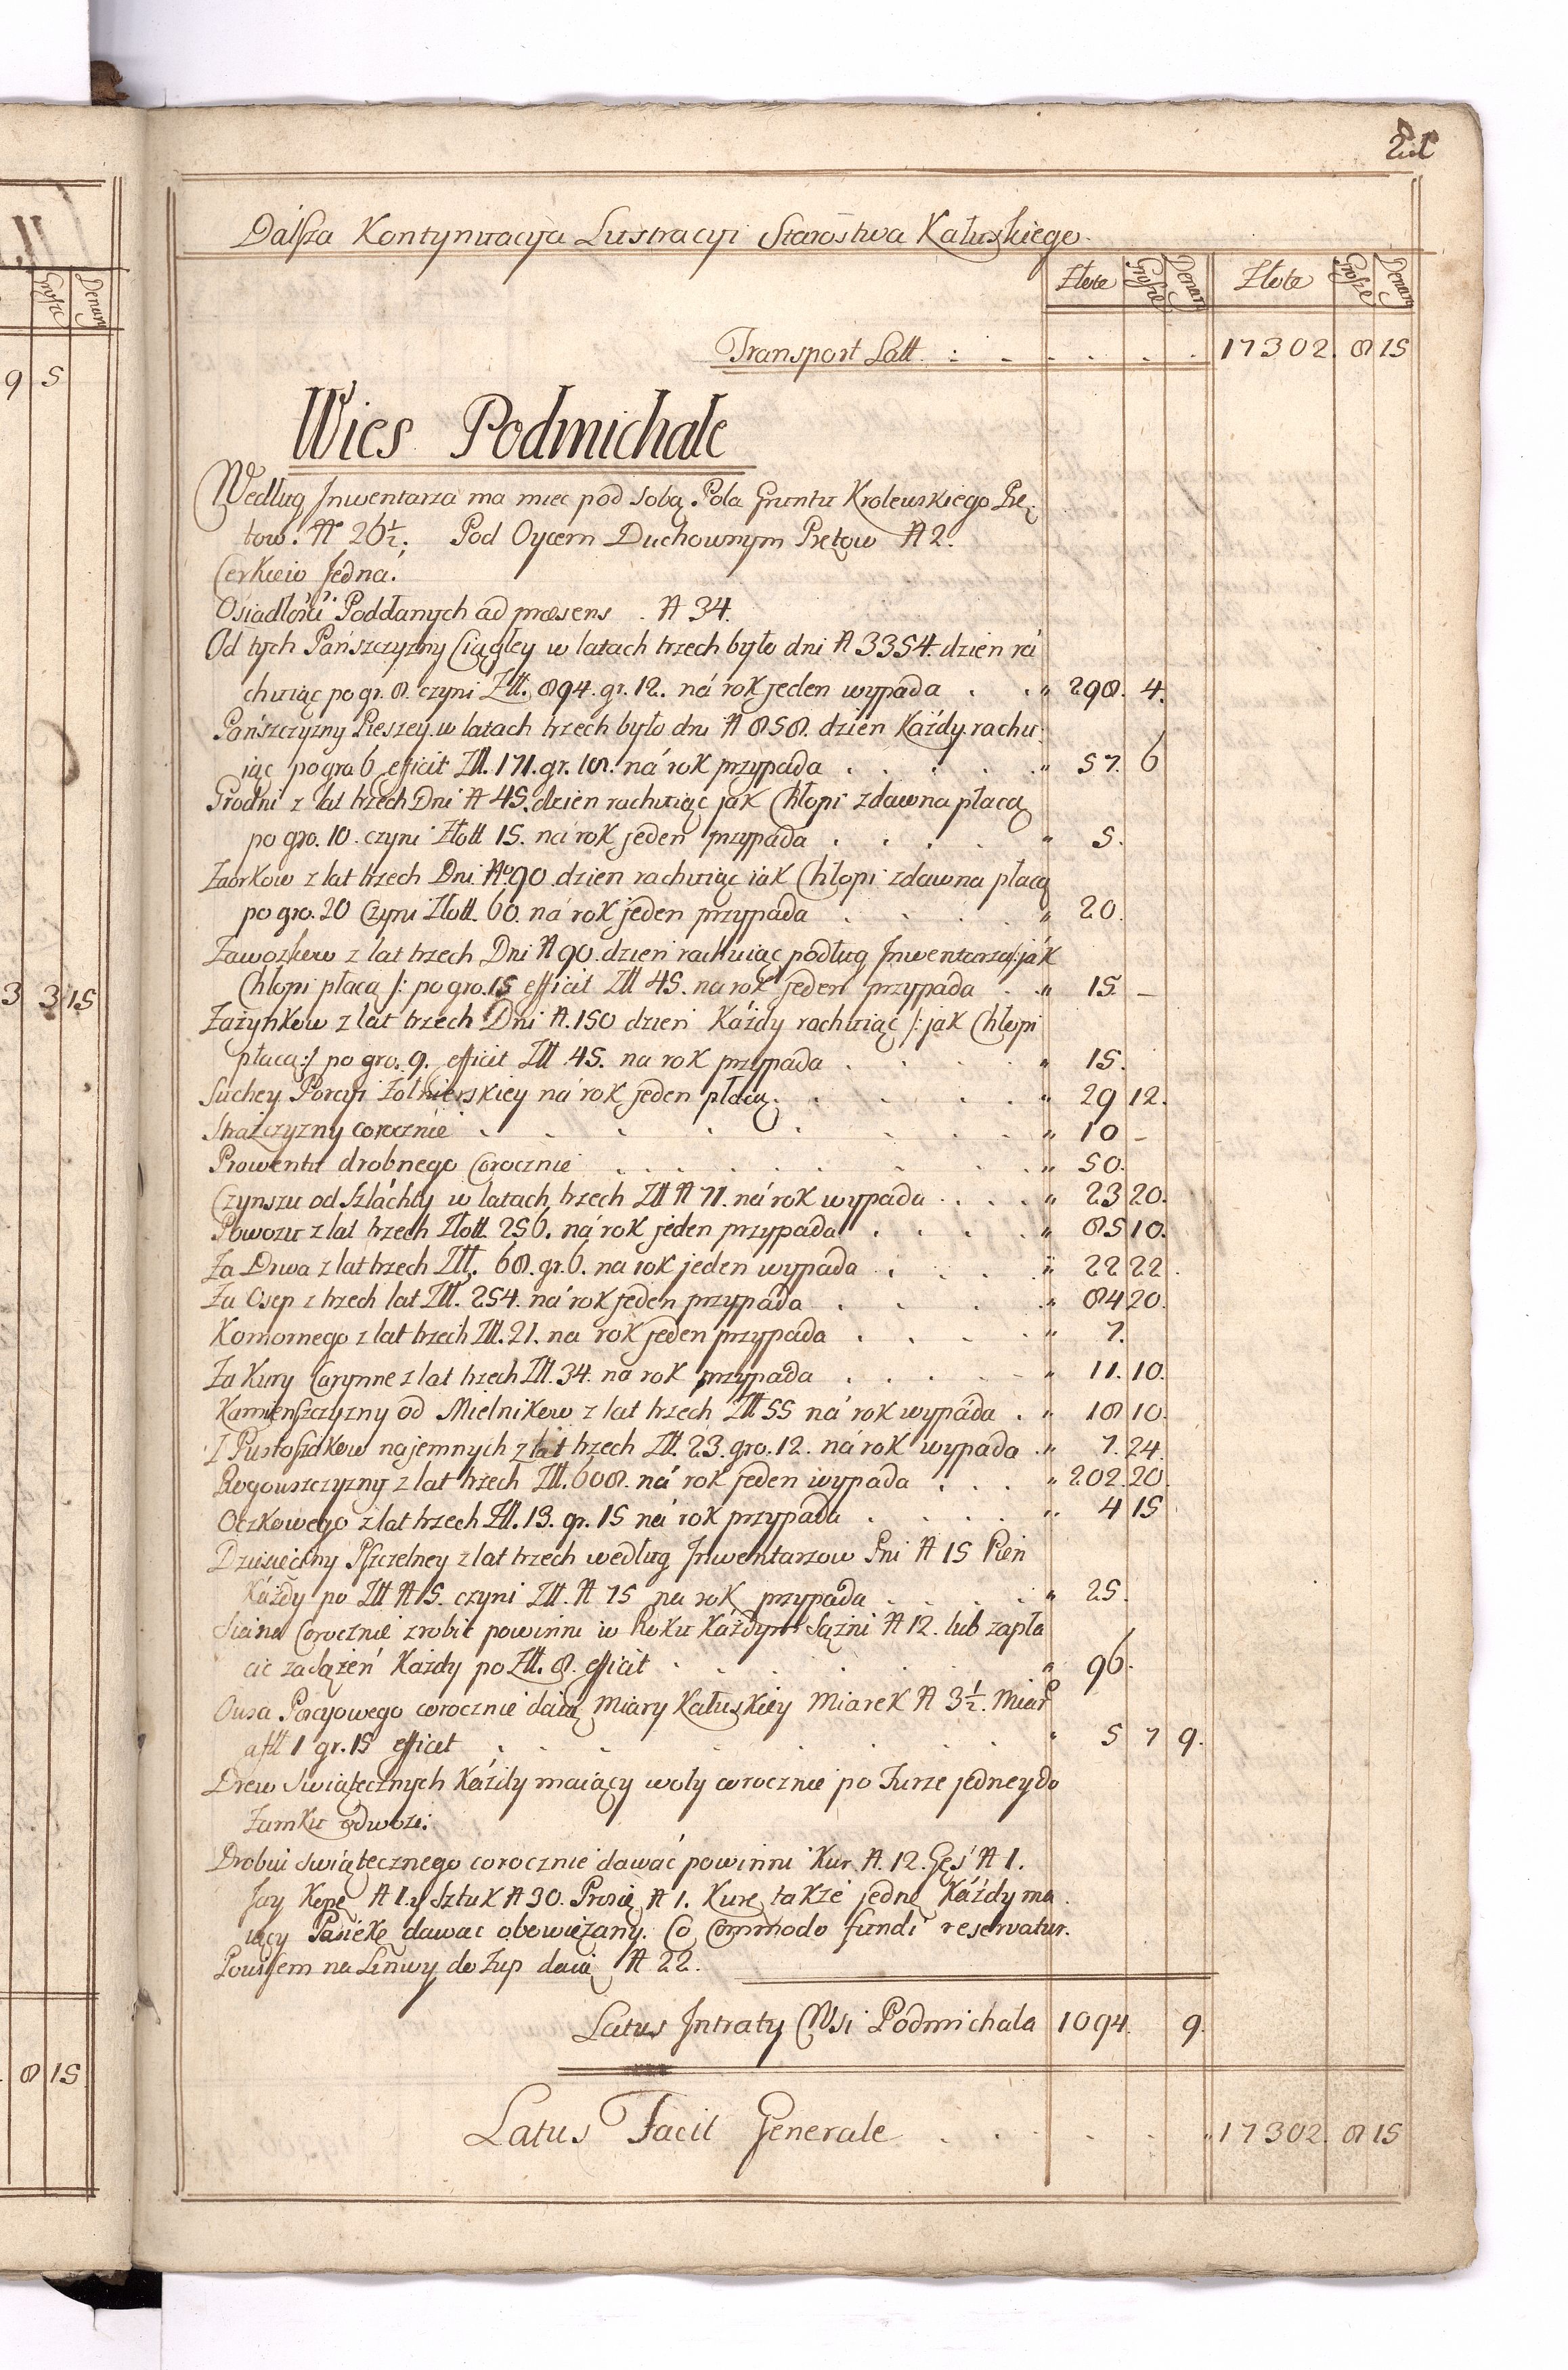 Dalsza Kontynuacya Lustracyi Starostwa Kałuskiego.
Złote Grosze Denary Złote Grosze Denary
Transport Latt. 17302. 8 15
Wies Podmichale
Według Inwentarza ma miec pod sobą Pola Gruntu Krolewskiego Prę
tow. N 26½. Pod Oycem Duchownym Prętow N 2.
Cerkiew Jedna.
Osiadłości Poddanych ad præsens N 34.
Od tych Pańszczyzny Ciągłey w latach trzech było dni N 3354. dzien ra
chuiąc po gr. 8. czyni Złł. 894. gr. 12. ná rok jeden wypada " 298. 4.
Pańszczyzny Pieszey w latach trzech było dni N 858. dzien Każdy rachu
iąc po gro 6 efficit Złł. 171. gr. 18. ná rok przypada " 57. 6
Grodni z lat trzech Dni N 45. dzien rachuiąc jak Chłopi zdawna płacą
po gro. 10. czyni Złott 15. ná rok jeden przypada " 5.
Zaorkow z lat trzech Dni No 90 dzien rachuiąc iak Chłopi zdawna płacą
po gro. 20 Czyni Złott. 60. ná rok jeden przypada " 20.
Zawozkow z lat trzech Dni N 90. dzien rachuiąc podług Inwentarza /: ják
Chłopi płacą /: po gro. 15 efficit Złł 45. na rok jeden przypada " 15. –
Zażynkow z lat trzech Dni N. 150 dzien Każdy rachuiąc /: jak Chłopi
płacą :/ po gro. 9. efficit Złł 45. na rok przypada " 15.
Suchey Porcyi Żołnierskiey ná rok jeden płacą. " 29 12.
Strażczyzny corocznie " 10 –
Prowentu drobnego Corocznie " 50.
Czynszu od Szláchty w latach trzech Złł N 71. ná rok wypada " 23 20.
Powozu z lat trzech Złott. 256. ná rok jeden przypada " 85 10.
Za Drwa z lat trzech Złł. 68. gr. 6. na rok jeden wypada " 22 22.
Za Osep z trzech lat Złł. 254. ná rok jeden przypada " 84 20.
Komornego z lat trzech Złł. 21. na rok jeden przypada " 7.
Za Kury Czynne z lat trzech Złł. 34. na rok przypada " 11. 10.
Kamienszczyzny od Mielnikow z lat trzech Złł 55 ná rok wypáda " 18 10.
Z Pustoszkow najemnych z lat trzech Złł. 23. gro. 12. ná rok wypada " 7. 24.
Rogowszczyzny z lat trzech Złł. 608. ná rok jeden wypada " 202. 20.
Oczkowego z lat trzech Złł. 13. gr. 15 ná rok przypada " 4 15
Dziesięciny Pszczelney z lat trzech według Inwentarzow Pni N 15 Pien
Każdy po Złł N 5. czyni Złł. N 75 na rok przypada " 25.
Siana Corocznie zrobić powinni w Roku Każdym Sążni N 12. lub zapła
cic za Sążeń Każdy po Złł. 8. efficit " 96.
Owsa Porcyowego corocznie daią Miary Kałuskiey Miarek N 3½. Miar
a fłł 1 gr. 15 efficit " 5 7 9.
Drew Swiątecznych Każdy maiący woły corocznie po Furze jedney do
Zamku odwozi.
Drobiu Swiątecznego corocznie dawać powinni Kur N. 12. Gęś N 1.
Jay Kopę N 1. y Sztuk N 30. Prosię N 1. Kurę także jednę Każdy ma
iący Pasiekę dawac obowiązany. Co Commodo fundi reservatur.
Powisem na Linwy do Żup daią N 22.
Latus Intraty Wsi Podmichala 1094. 9.
Latus Facit Generale " 17302. 8 15
9 5
3 3 15
8 15